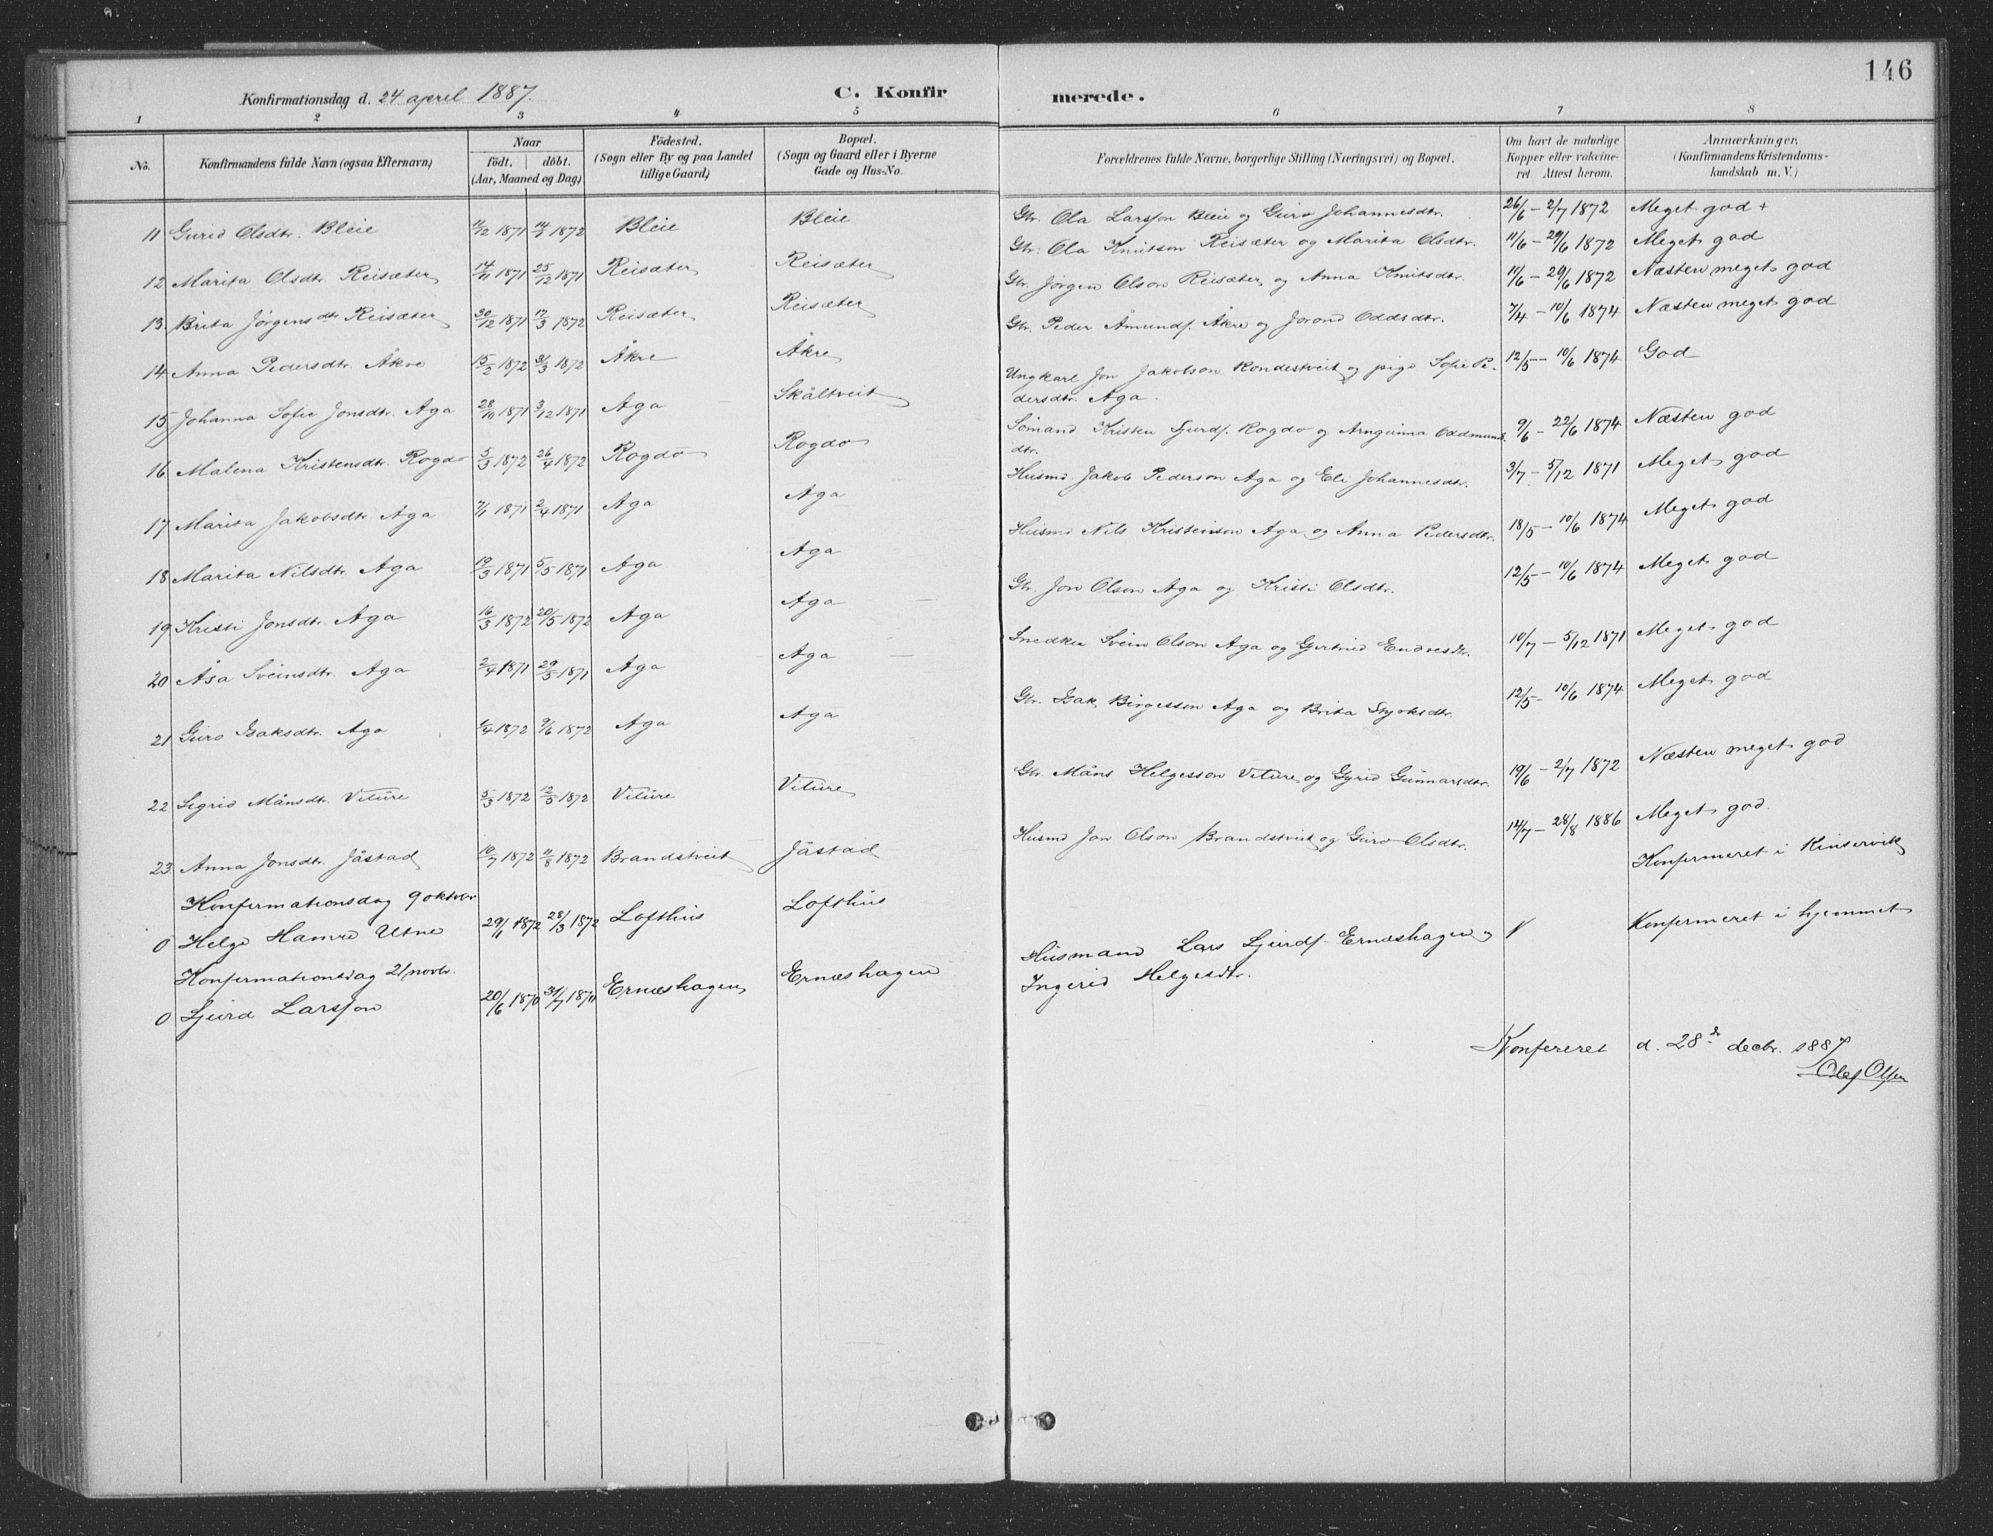 146
Konfirmationsdag d. 24 april 1887.
C. Konfirmerede.
1 2 3 4 5 6 7 8
No.
Konfirmandens fulde Navn (ogsaa Efternavn)
Naar
födt. | döbt.
(Aar, Maaned og Dag)
Födested.
(Sogn eller By og paa Landet
tillige Gaard)
Bopæl.
(Sogn og Gaard eller i Byerne
Gade og Hus-No.
Forældrenes fulde Navne, borgerlige Stilling (Næringsvei) og Bopæl.
Om havt de naturlige
Kopper eller vakcine-
ret Attest herom.
Anmærkninger.
(Konfirmandens Kristendoms-
kundskab m. V.)
11 Gurid Olsdtr. Bleie 1871 1872 Bleie Bleie Gbr. Ola Larsson Bleie og Guro Johannesdtr. 26/6 – 2/7 1872 Meget god +
12 Marita Olsdtr. Reisæter 14/11 1871 25/12 1871 Reisæter Reisæter Gbr. Ola Knutson Reisæter og Marita Olsdtr. 11/6 – 29/6 1872 Meget god
13 Brita Jørgensdtr Reisæter 30/12 1871 17/3 1872 Reisæter Reisæter Gbr. Jørgen Olson Reisæter og Anna Knutsdtr. 11/6 – 29/6 1872 Næsten meget god
14 Anna Pedersdtr. Åkre 15/2 1872 31/3 1872 Åkre Åkre Gbr. Peder Åmundf. Åkre og Jorond Oddsdtr. 7/4 – 10/6 1874 Næsten meget god
15 Johanna Sofie Jonsdtr. Aga 28/10 1871 3/12 1871 Aga Skåltveit Ungkarl Jon Jakobson Rondestveit og pige Sofie Pe-
dersdtr. Aga. 12/5 – 10/6 1874 God
16 Malena Kristensdtr. Rogdo 5/3 1872 26/4 1872 Rogdo Rogdo Sömand Kristen Sjurdf. Rogdo og Arngunna Oddmunds
dtr. 9/6 – 22/6 1874 Næsten god
17 Marita Jakobsdtr Aga 7/1 1871 2/4 1871 Aga Aga Husmd. Jakob Pederson Aga og Eli Johannesdtr. 3/7 – 5/12 1871 Meget god
18 Marita Nilsdtr. Aga 19/3 1871 5/5 1871 Aga Aga Husmd Nils Kristenson Aga og Anna Pedersdtr. 18/5 – 10/6 1874 Meget god
19 Kristi Jonsdtr. Aga 16/3 1872 20/5 1872 Aga Aga Gbr. Jon Olson Aga og Kristi Olsdtr. 12/5 – 10/6 1874 Meget god
20 Åsa Sveinsdtr. Aga 2/4 1871 29/5 1871 Aga Aga Snedker Svein Olson Aga og Gjertrud Endresdtr. 10/7 – 5/12 1871 Meget god
21 Guro Isaksdtr. Aga 1872 9/6 1872 Aga Aga Gbr. Isak Birgesson Aga og Brita 12/5 – 10/6 1874 Meget god
22 Sigrid Månsdtr. Viture 5/3 1872 12/5 1872 Viture Viture Gbr Måns Helgesson Viture og Gyrid Gunnarsdtr. 19/6 – 2/7 1872 Næsten meget god
23 Anna Jonsdtr. Jåstad 10/7 1872 11/8 1872 Brandstveit Jåstad Husmd Jon Olson Brandstveit og Guro Olsdtr. 14/7 – 28/8 1886 Meget god.
Konfirmationsdag 9 oktobr Konfermeret i Kinservik
0 Helge Hamre Utne 29/1 1872 28/3 1872 Lofthus Lofthus
Konfirmationsdag 21/novbr. Konfermeret i hjemmet
0 Sjurd Larsson 20/6 1870 31/7 1870 Ernæshagen Ernæshagen Husmand Lars Sjurdf. Ernæshagen og V
Ingerid Helgesdtr.
Konfereret d. 28de decbr. 1887
Olaf Olsen